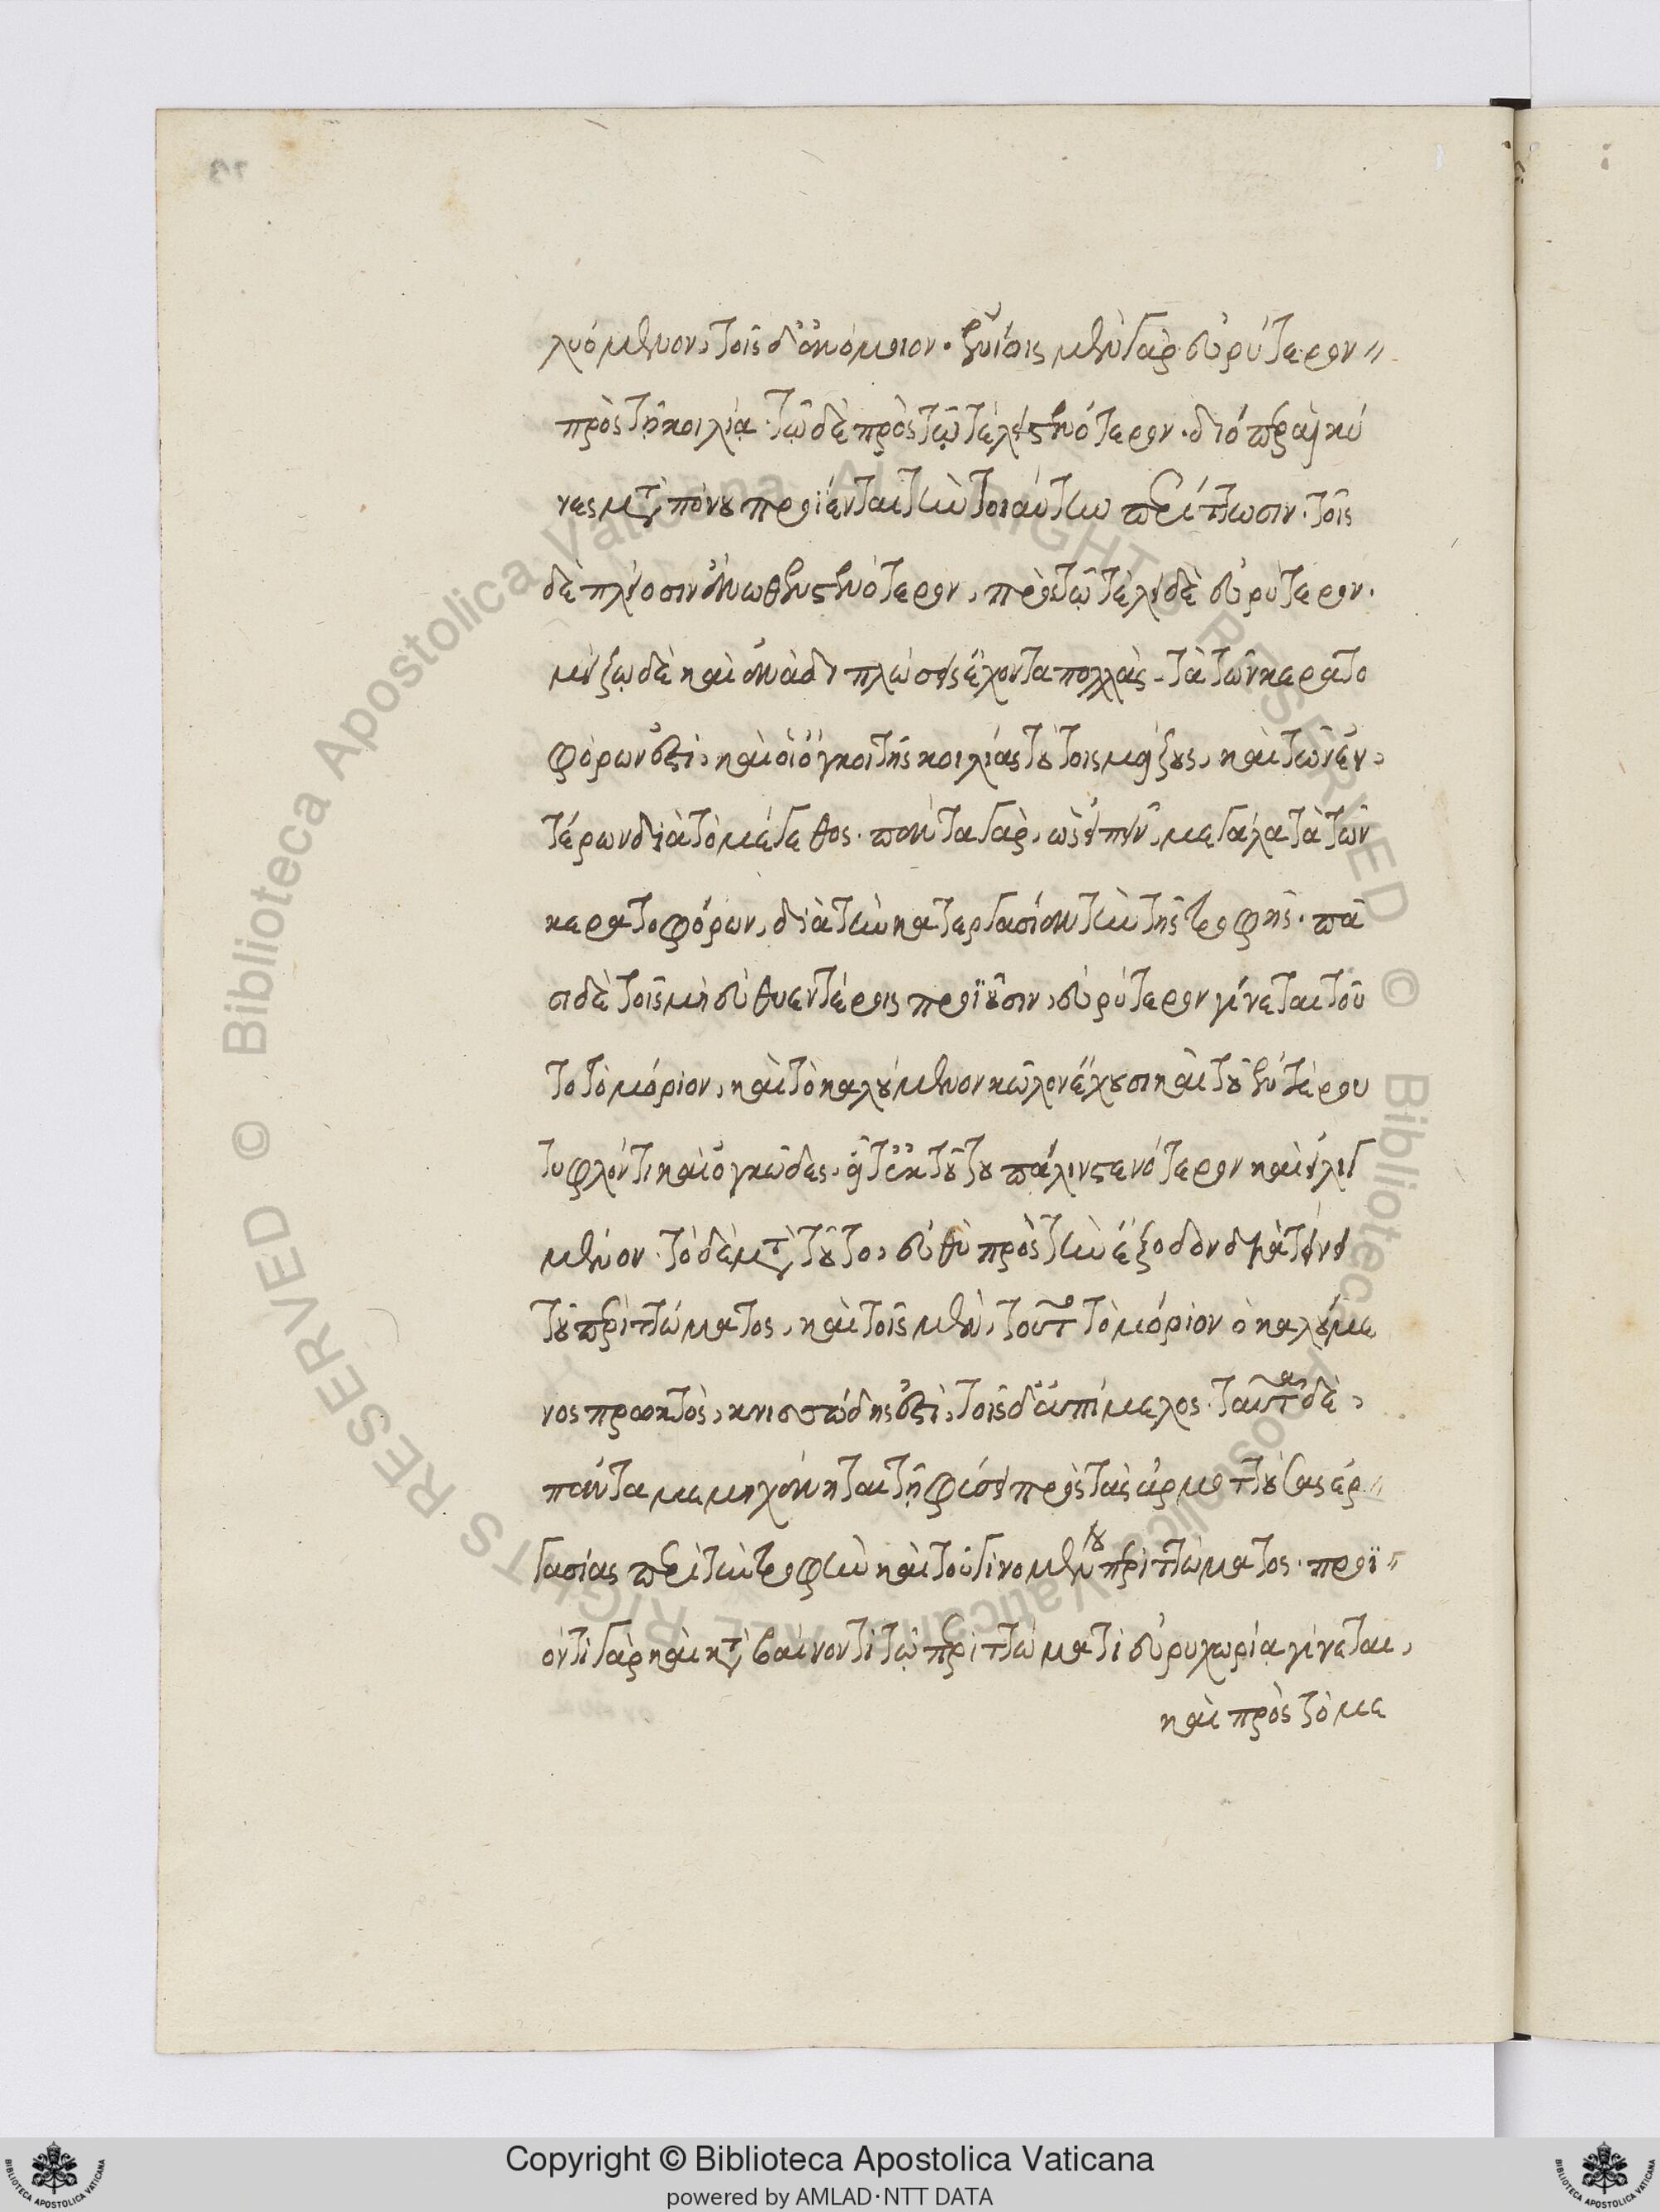 λυόμενον, τοῖς δ' ἀνόμοιον. ἐνίοις μὲν γὰρ εὐρύτερον
πρὸς τῇ κοιλίᾳ. τῷ δὲ πρὸς τῷ τέλει στενότερον. διόπερ αἱ κύ
νες μετὰ πόνου προΐενται τὴν τοιαύτην περίττωσιν. τοῖς
δὲ πλείοσιν ἄνωθεν στενότερον, πρὸς τῷ τέλει δὲ εὐρύτερον.
μείζω δὲ καὶ ἀναδιπλώσεις ἔχοντα πολλὰς. τὰ τῶν κερατο
φόρων ἐστὶ, καὶ οἱ ὄγκοι τῆς κοιλίας τούτοις μείζους, καὶ τῶν ἐν
τέρων διὰ τὸ μέγεθος. πάντα γὰρ, ὡς εἰπεῖν, μεγάλα τὰ τῶν
κερατοφόρων, διὰ τὴν κατεργασίαν τὴν τῆς τροφῆς. πᾶ
σι δὲ τοῖς μὴ εὐθυεντέροις προϊοῦσιν, εὐρύτερον γίνεται τοῦ
το τὸ μόριον, καὶ τὸ καλούμενον κῶλον ἔχουσι καὶ τοῦ ἐντέρου
τυφλόν τι καὶ ὀγκῶδες. εἶτ' ἐκ τούτου πάλιν στενότερον καὶ εἱλιγ
μένον. τὸ δὲ μετὰ τοῦτο, εὐθὺ πρὸς τὴν ἔξοδον διατείνει
τοῦ περιττώματος, καὶ τοῖς μὲν, τοῦτο τὸ μόριον ὁ καλούμε
νος πρωκτὸς, κνισσώδης ἐστὶ, τοῖς δ' ἀπίμελος. ταῦτα δὲ,
πάντα μεμηχάνηται τῇ φύσει πρὸς τὰς ἁρμοττούσας ἐρ
γασίας περὶ τὴν τροφὴν καὶ τοῦ γινομένου περιττώματος. προϊ
όντι γὰρ καὶ καταβαίνοντι τῷ περιττώματι εὐρυχωρία γίνεται,
καὶ πρὸς τὸ με
Copyright © Biblioteca Apostolica Vaticana
powered by AMLAD·NTT DATA